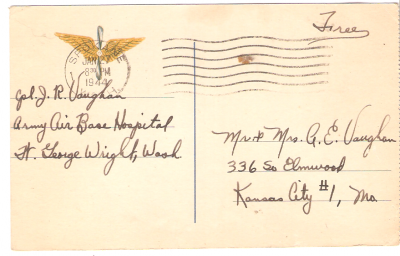 Free
SPOKANE
JAN
8 PM
1944
Cpl. J. R. Vaughan
Army Air Base Hospital
Ft. George Wright, Wash
Mr & Mrs. G. E. Vaughan
336 So Elmwood
Kansas City #1, Mo.